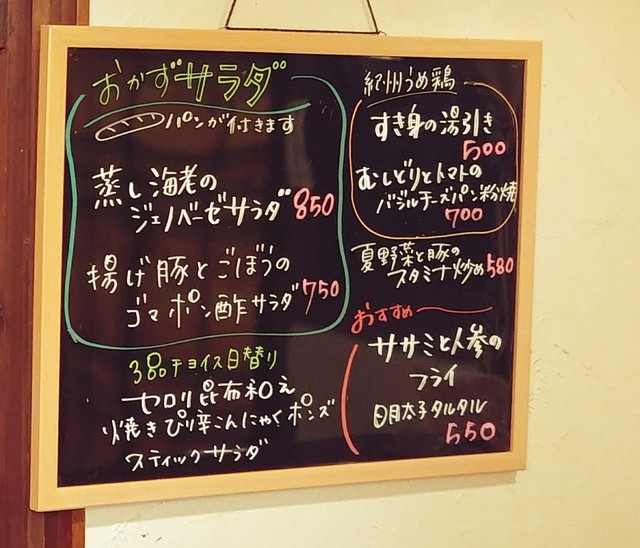 おかずサラダ
パンが付きます
蒸し海老の
ジェノベーゼサラダ 850
揚げ豚とごぼうの
ゴマポン酢サラダ 750
3品チョイス日替り
セロリ昆布和え
焼きぴり辛こんにゃくポンズ
スティックサラダ
紀州うめ鶏
すき身の湯引き
500
むしどりとトマトの
バジルチーズパン粉焼
700
夏野菜と豚の
スタミナ炒め 580
おすすめ
ササミと人参の
フライ
明太子タルタル
550